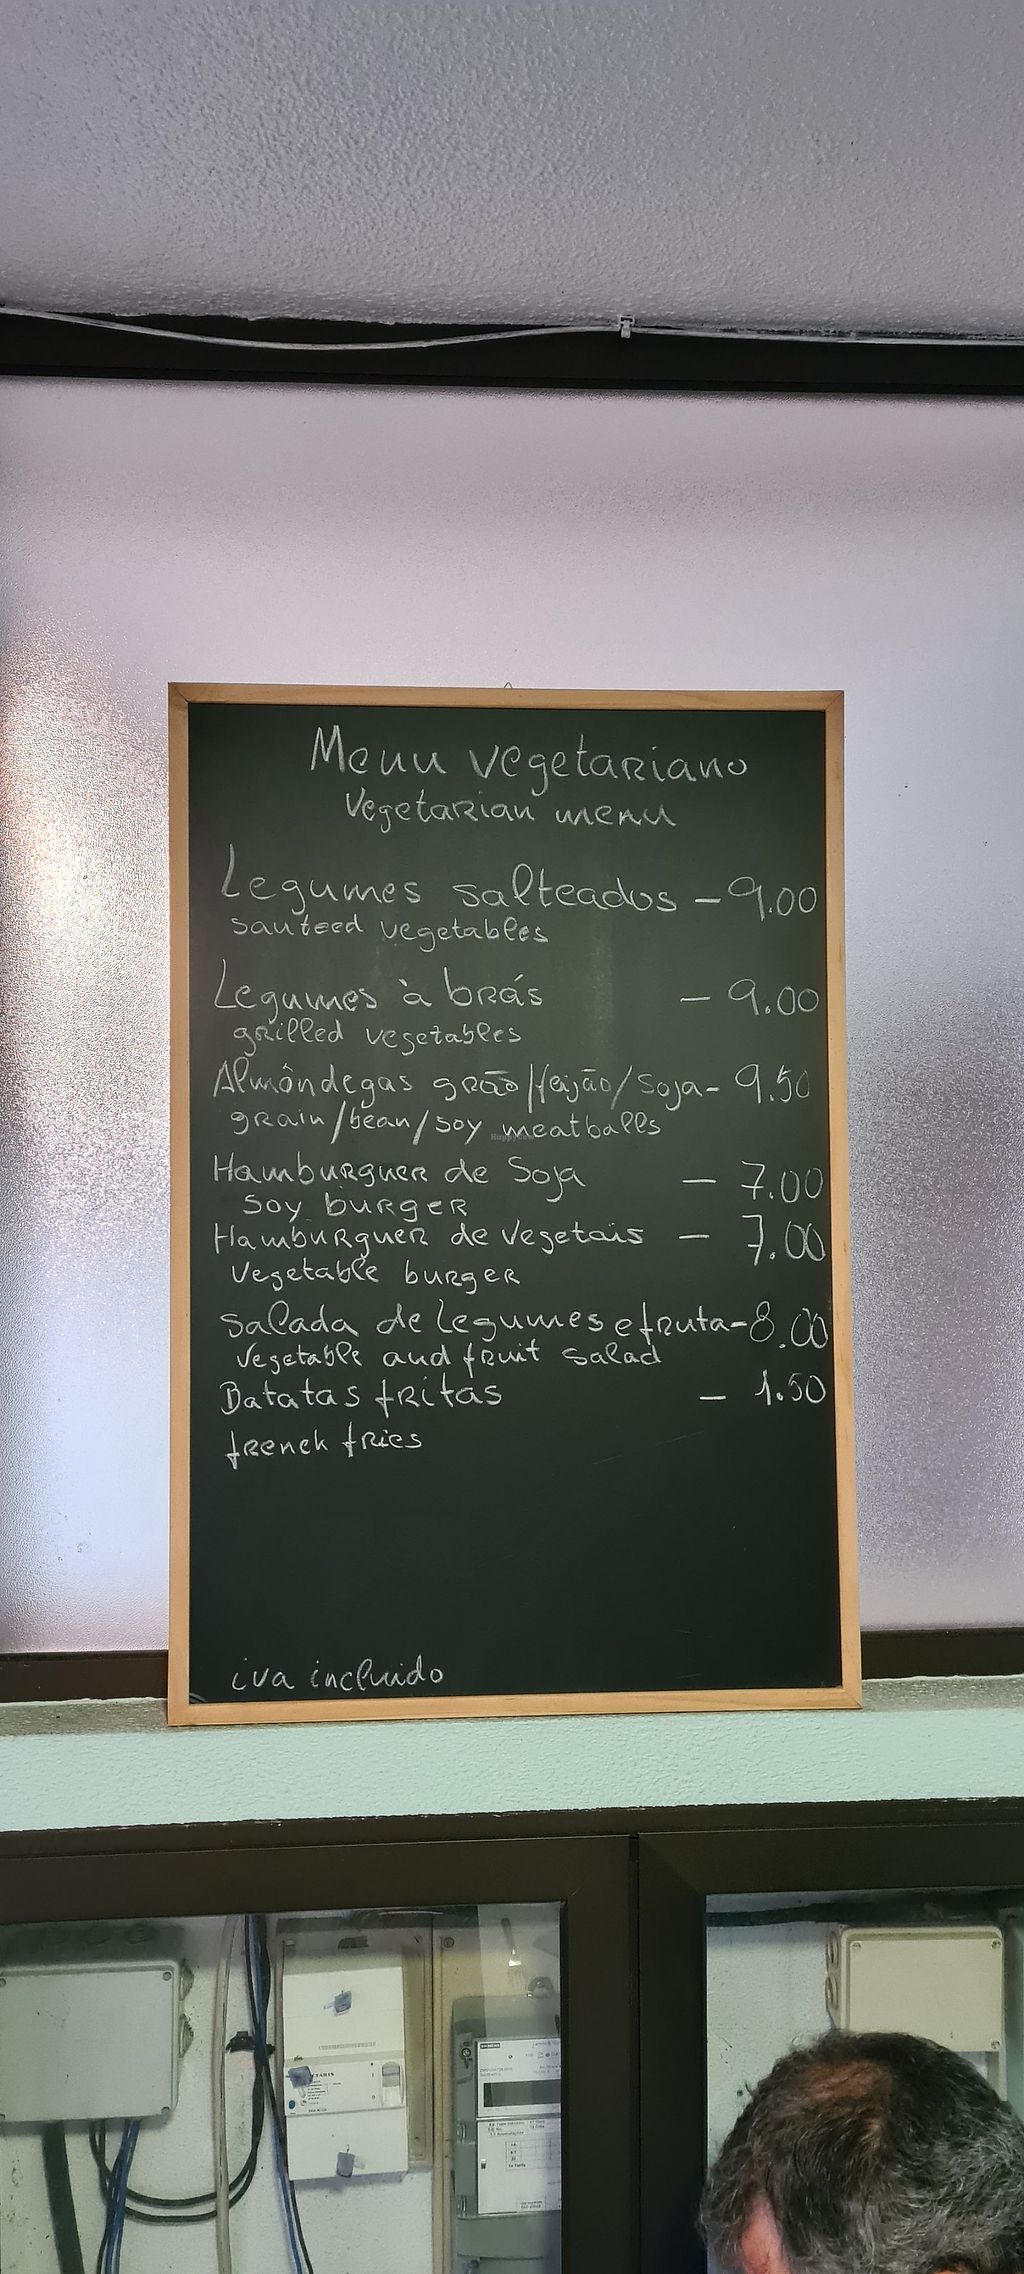 Menu vegetariano
Vegetarian menu
Legumes salteados - 9.00
sauteed vegetables
Legumes à brás - 9.00
grilled vegetables
Almôndegas grão/feijão/soja - 9.50
grain/bean/soy meatballs
HappyCow
Hamburguer de Soja - 7.00
Soy burger
Hamburguer de vegetais - 7.00
Vegetable burger
Salada de legumes e fruta - 8.00
Vegetable and fruit salad
Batatas fritas - 1.50
french fries
iva incluido